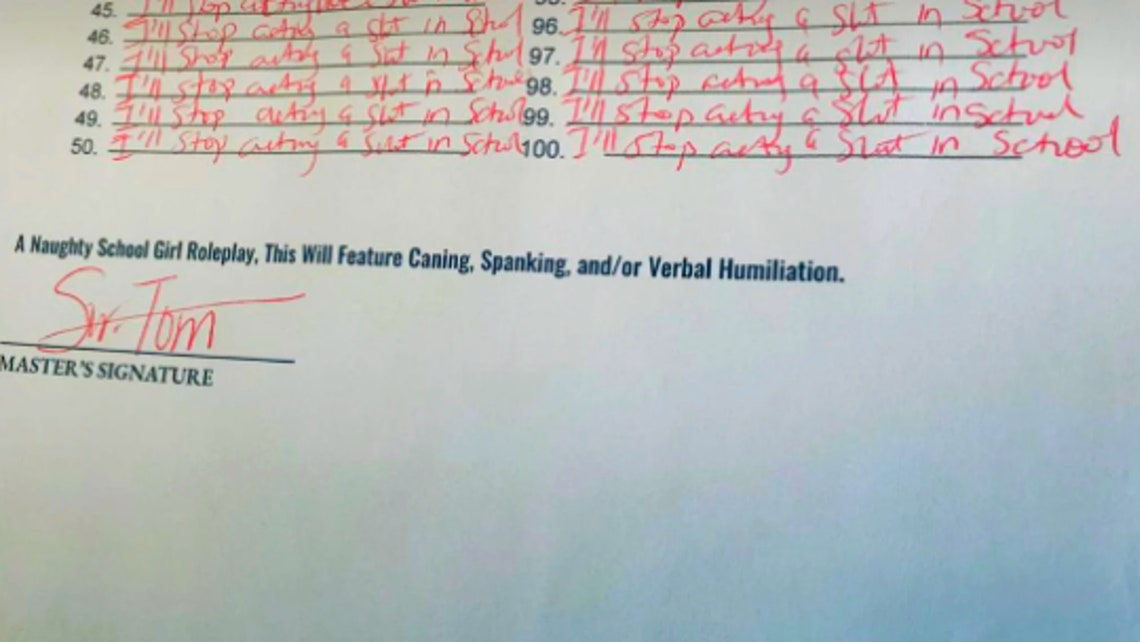 45. I'll stop
46. I'll stop acting a slut in School
47. I'll Stop acting a Slut in School
48. I'll stop acting a slut in School
49. I'll Stop acting a Slut in School
50. I'll Stop acting a Slut in School
96. I'll Stop acting a Slut in School
97. I'll Stop acting a slut in School
98. I'll Stop acting a Slut in School
99. I'll Stop acting a Slut in School
100. I'll Stop acting a Slut in School
A Naughty School Girl Roleplay, This Will Feature Caning, Spanking, and/or Verbal Humiliation.
Sir. Tom
MASTER'S SIGNATURE